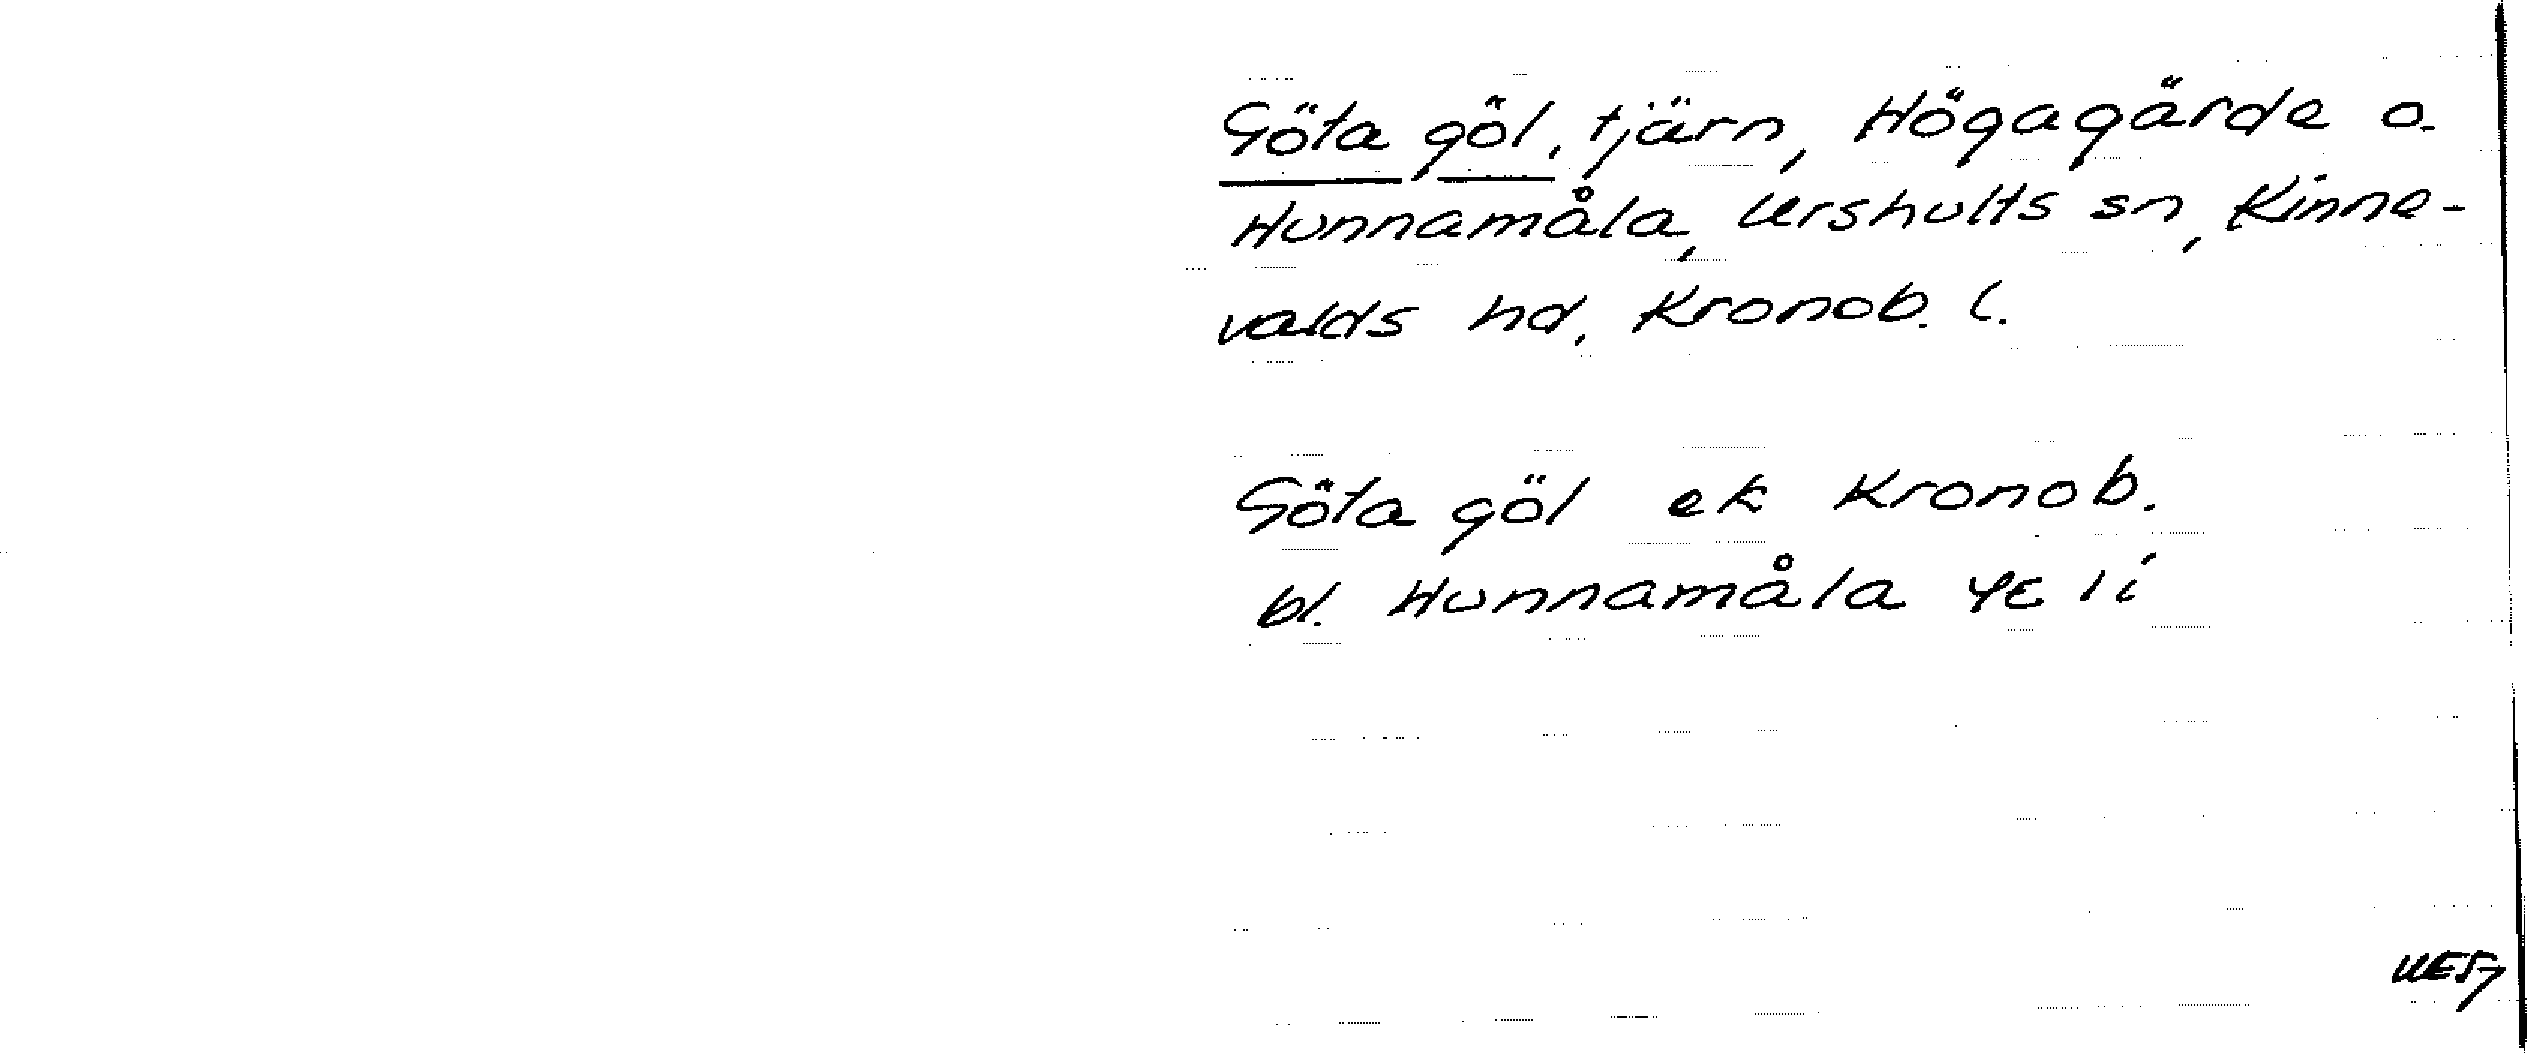 Göta göl, tjärn, Högagärde o.
Hunnamåla, Urshults sn, Kinne-
valds hd, Kronob. l.
Göta göl ek Kronob.
bl. Hunnamåla 4E 1i